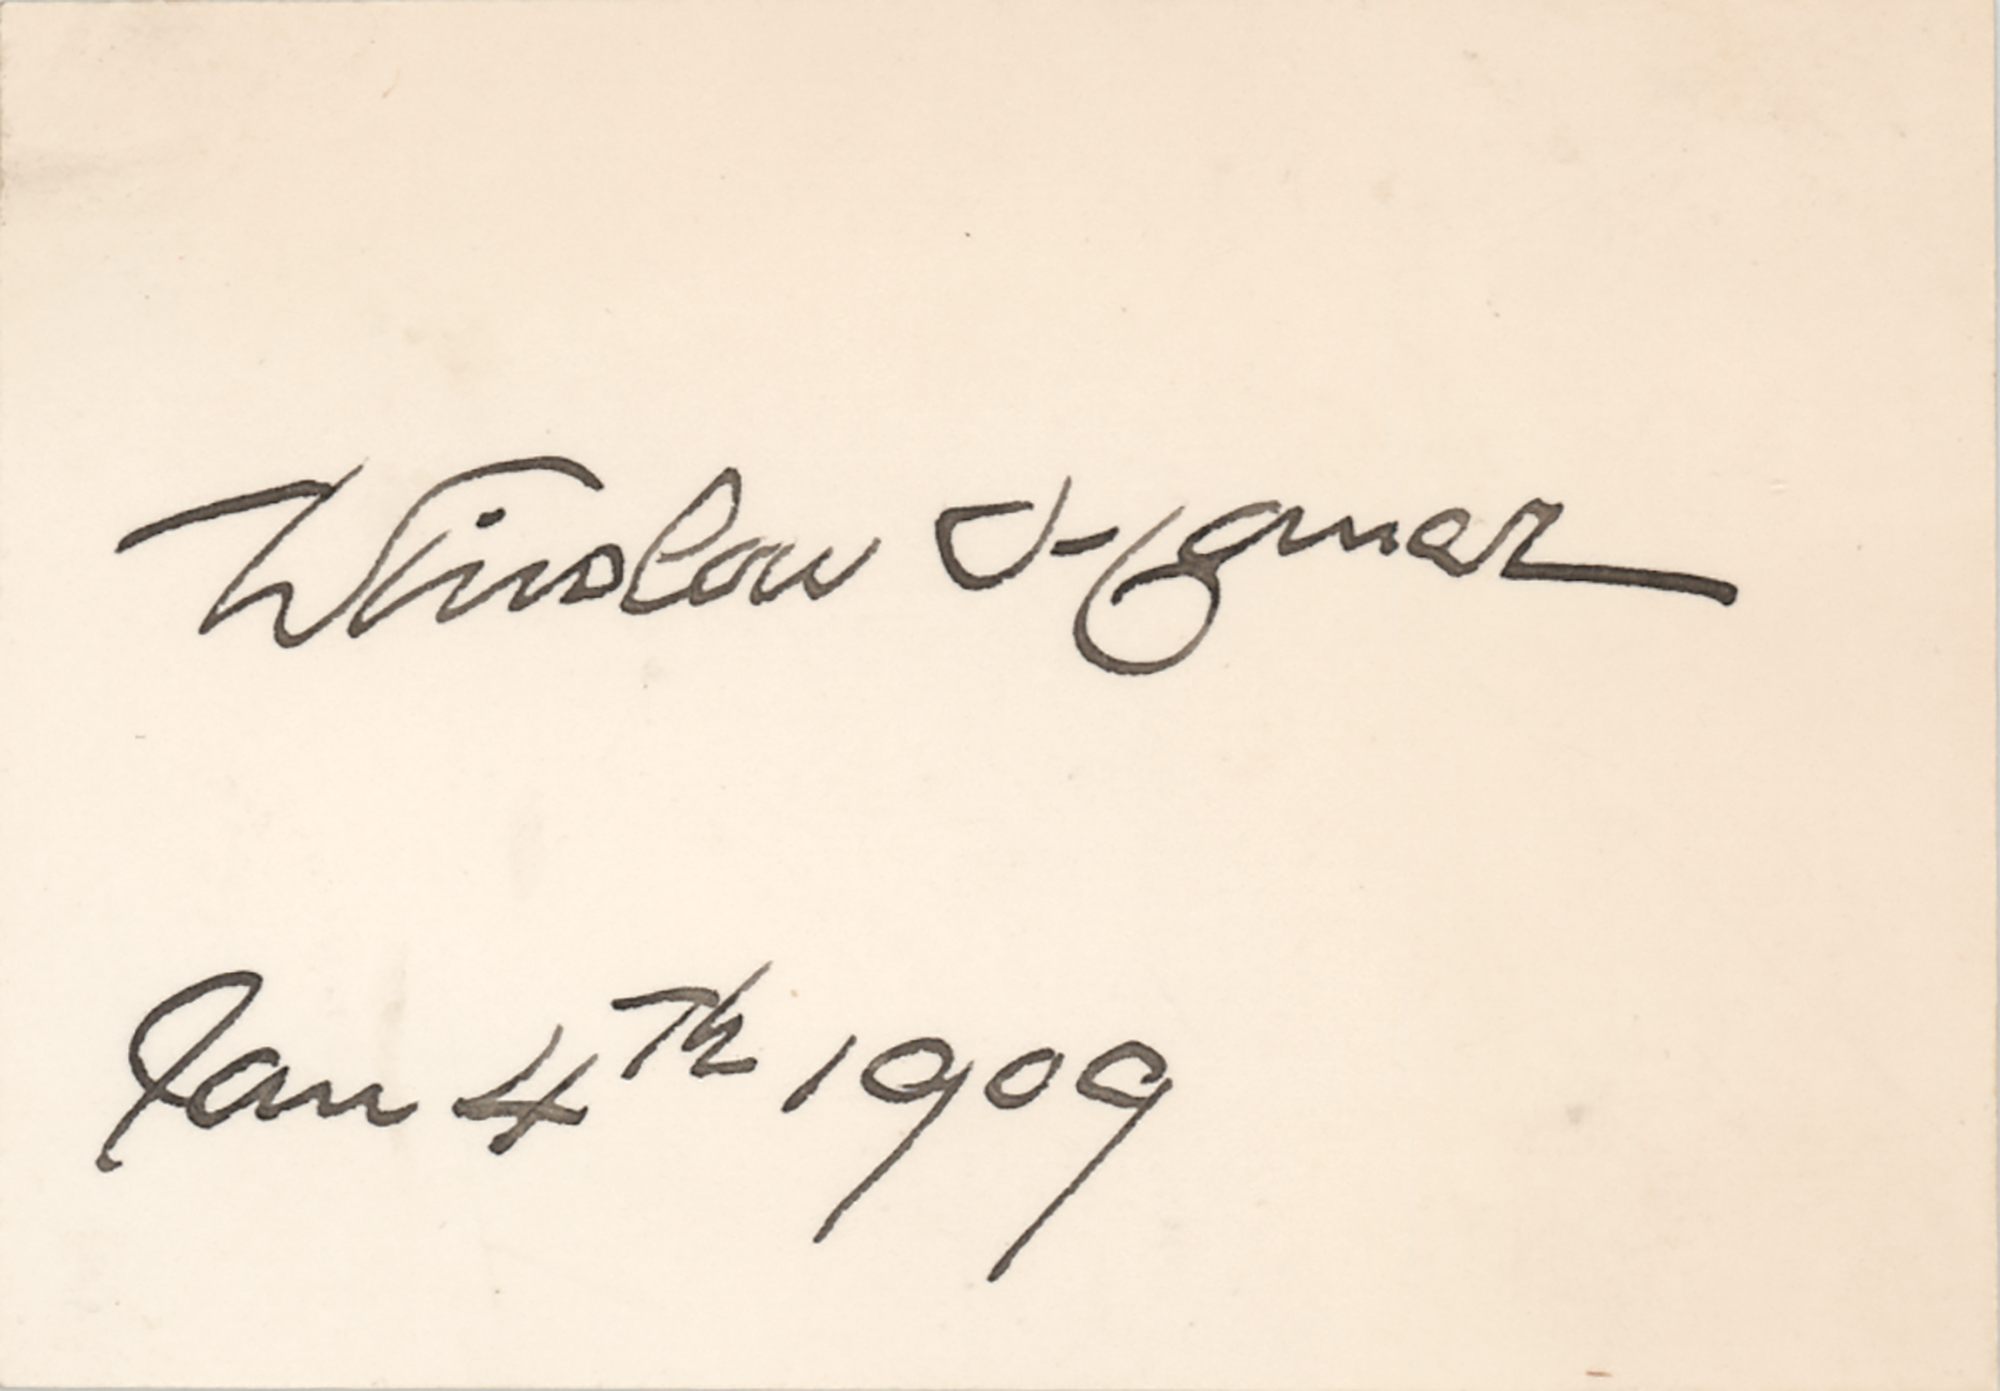 Winslow Homer
Jan 4th 1909